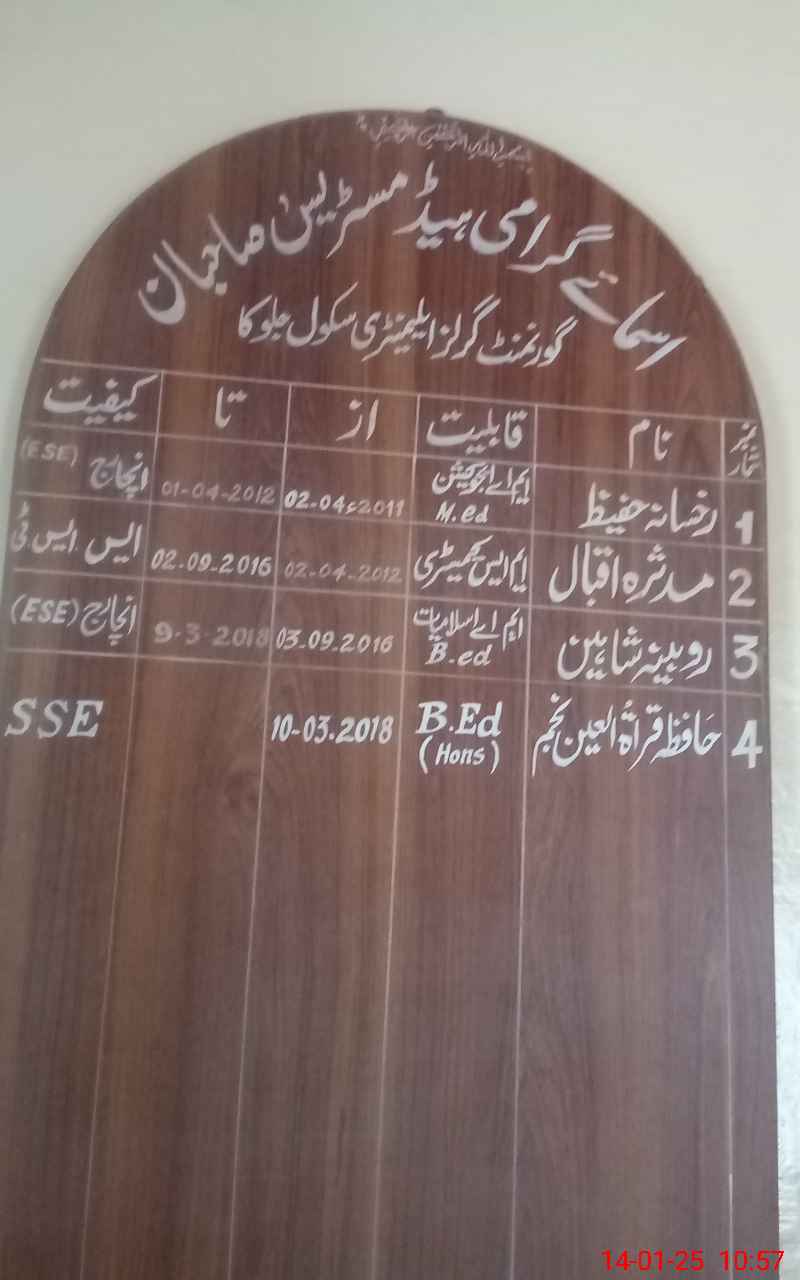 بسم اللہ الرحمٰن الرحیم
اسمائے گرامی ہیڈ مسٹریس صاحبان
گورنمنٹ گرلز ایلیمنٹری سکول جلوکا
نمبر شمار نام قابلیت از تا کیفیت
1 رخسانہ حفیظ ایم اے ایجوکیشن M.ed 02-04-2011ء 01-04-2012 انچارج (ESE)
2 مدثرہ اقبال ایم ایس کیمیٹری 02-04-2012 02.09.2016 ایس ایس ٹی
3 روبینہ شاہین ایم اے اسلامیات B.ed 03.09.2016 9-3-2018 انچارج (ESE)
4 حافظہ قراۃ العین نجم B.Ed (Hons) 10-03.2018 SSE
14-01-25 10:57